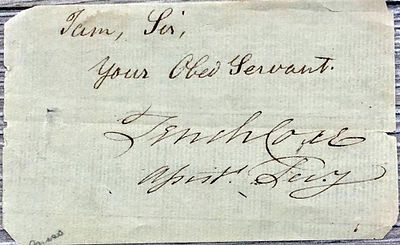 I am, Sir,
Your Obed Servant.
Tench Coxe
Assist. Secy